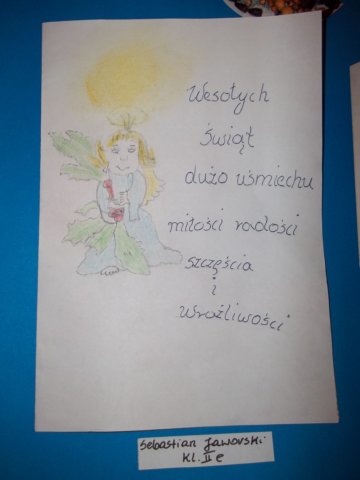 Wesołych
świąt
dużo uśmiechu
miłości radości
szczęścia
i
wrażliwości
Sebastian Jaworski
kl. II e